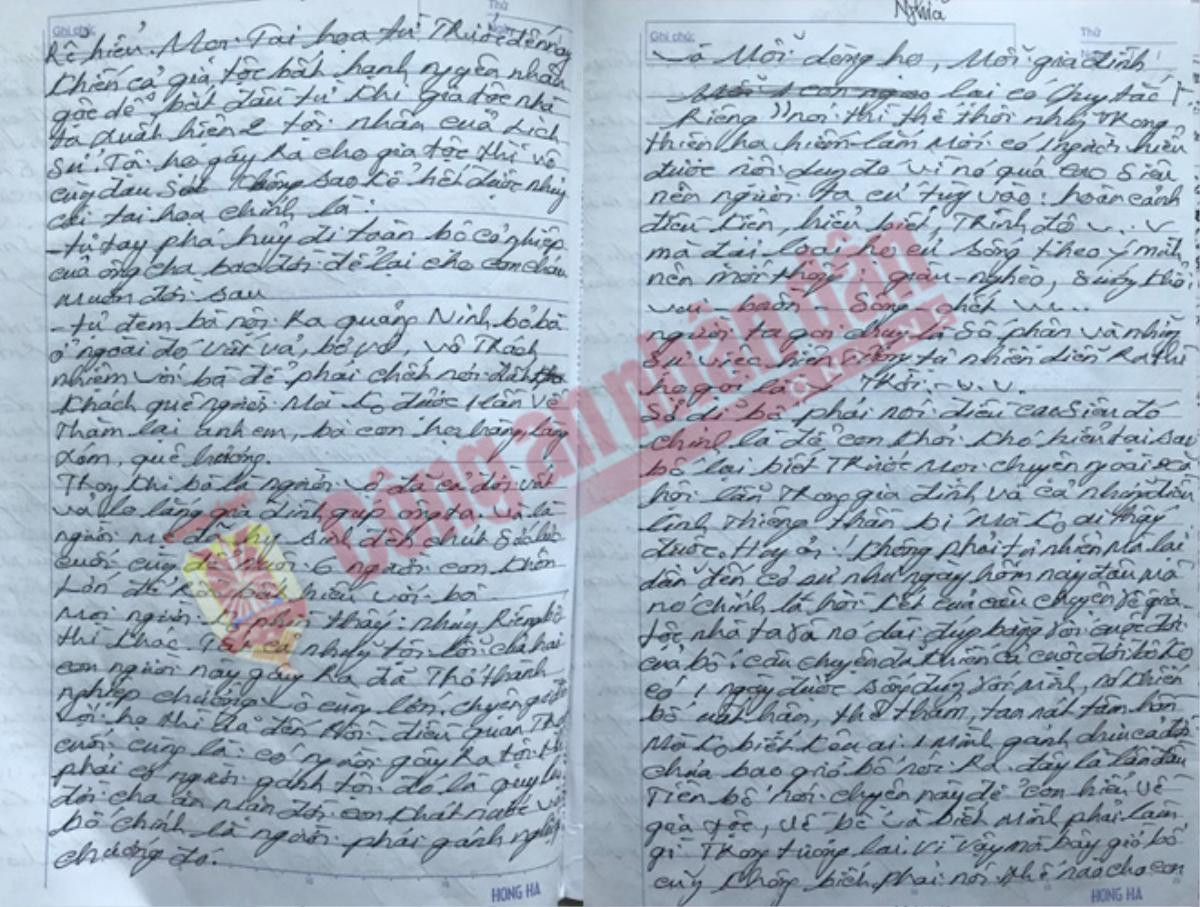 Ghi chú:
Thứ
Ngày
kẻ hiểu. Mọi Tai họa từ Trước đến nay
khiến cả gia tộc bất hạnh nguyên nhân
gốc dễ bắt đầu từ khi gia tộc nhà
ta xuất hiện 2 tội nhân của Lịch
sử. Tội họ gây Ra cho gia tộc thì vô
cùng đau Sót không sao kể hết được nhưng
cái tai họa chính là:
- tự tay phá hủy đi toàn bộ cơ nghiệp
của ông cha bao đời để lại cho con cháu
muôn đời sau
- tự đem bà nội Ra quảng Ninh bỏ bà
ở ngoài đó vất vả, bơ vơ, vô Trách
nhiệm với bà để phải chết nơi đất
khách quê người Mà ko được 1 lần về
Thăm lại anh em, bà con họ hàng, làng
xóm, quê hương.
Trong khi bà là người vợ đã cả đời vất
vả lo lắng gia đình giúp ông ta và là
người mẹ đã hy sinh đến chút Sức lực
cuối cùng để nuôi 6 người con khôn
Lớn
với bà.
Mọi người thấy: nhưng Riêng bố
thì khác. Tất cả những tội lỗi của hai
con người này gây Ra đã Trở thành
nghiệp chướng vô cùng lớn. chuyện
điều quan Trọng
cuối cùng là: có người gây Ra tội thì
phải có người gánh tội đó là quy luật
đời cha ăn mặn đời con khát nước và
bố chính là người phải gánh nghiệp
chướng đó.
HONG HA
Nghĩa
Ghi chú:
Thứ
Ngày
Và Mỗi dòng họ, Mỗi gia đình
lại có Quy tắc
Riêng" nói thì thế thôi nhưng Trong
thiên hạ hiếm lắm Mới có 1 người hiểu
được nội dung đó vì nó quá cao siêu
nên người ta cứ tùy vào: hoàn cảnh
điều kiện, hiểu biết, Trình độ v... v
mà họ cứ sống theo ý mình
nên mới : giàu-nghèo, sướng khổ,
vui - buồn, Sống - chết v..
người ta gọi chung là số phận và những
sự việc hiện tượng tự nhiên diễn Ra thì
họ gọi là Trời. - v. v.
Sở dĩ bố phải nói điều cao siêu đó
chính là để con khỏi khó hiểu tại sao
bố lại biết Trước Mọi chuyện ngoài xã
hội lẫn Trong gia đình và cả những điều
linh thiêng thần bí Mà ko ai thấy
được. Không phải tự nhiên Mà lại
dẫn đến cơ sự như ngày hôm nay đâu mà
nó chính là hồi kết của câu chuyện về gia
tộc nhà ta và nó dài đúng bằng với cuộc đời
của bố. câu chuyện đã khiến cả cuộc đời bố ko
có 1 ngày được sống đúng với Mình, nó khiến
bố uất hận, thê thảm, tan nát tâm hồn
Mà ko biết kêu ai. 1 Mình gánh chịu cả đời
chưa bao giờ bố nói Ra. đây là lần đầu
Tiên bố nói chuyện này để con hiểu về
gia tộc, về bố và biết Mình phải làm
gì Trong tương lai. Vì vậy mà bây giờ bố
cũng không biết phải nói thế nào cho con
HONG HA
Công an nhân dân